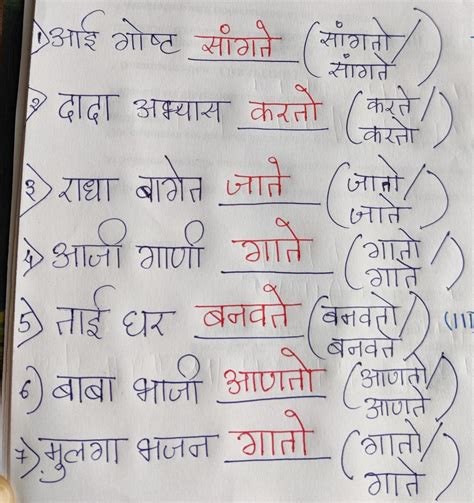 १) आई गोष्ट सांगते (सांगतो / सांगते)
२) दादा अभ्यास करतो (करते / करतो)
३) राधा बागेत जाते (जातो / जाते)
४) आजी गाणी गाते (गातो / गाते)
5) ताई घर बनवते (बनवतो / बनवते)
6) बाबा भाजी आणतो (आणतो / आणते)
7) मुलगा भजन गातो (गातो / गाते)